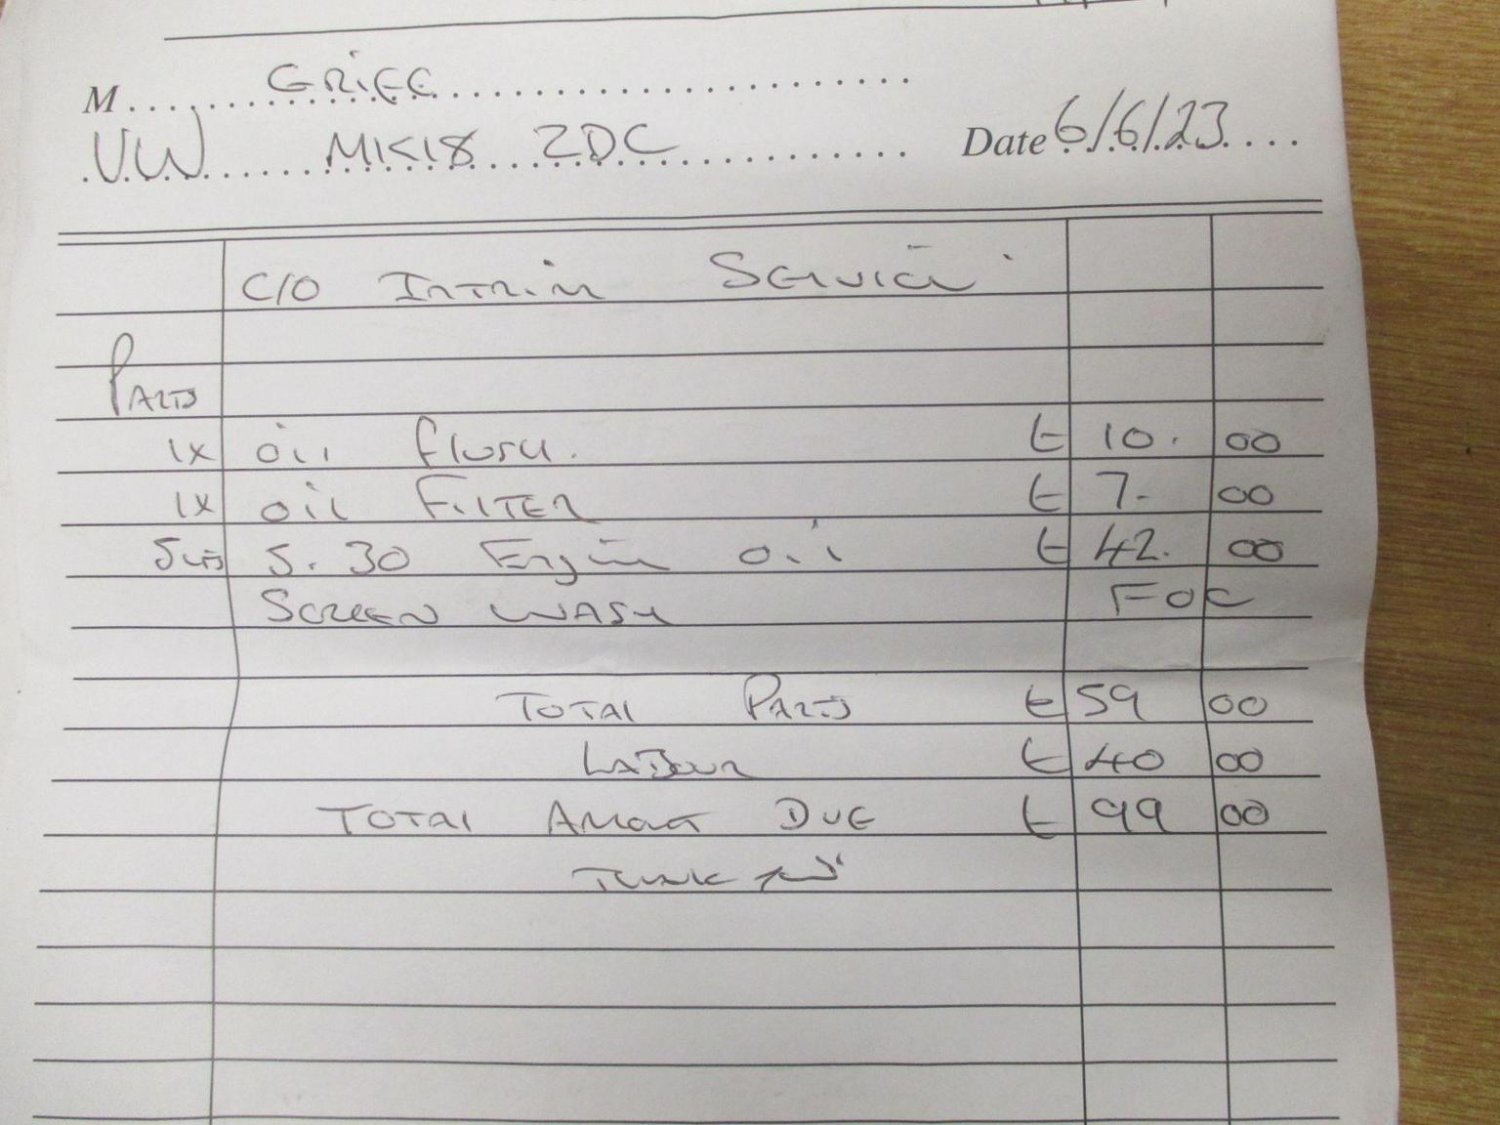 M
VW MK18 ZDC Date 6/6/23
C/O Intrim Service
Parts
1x oil flush. £ 10. 00
1x oil Filter £ 7. 00
5Lts 5.30 Engine oil £ 42. 00
Screen wash FOC
Total Parts £ 59 00
Labour £ 40 00
Total Amount Due £ 99 00
Thank you